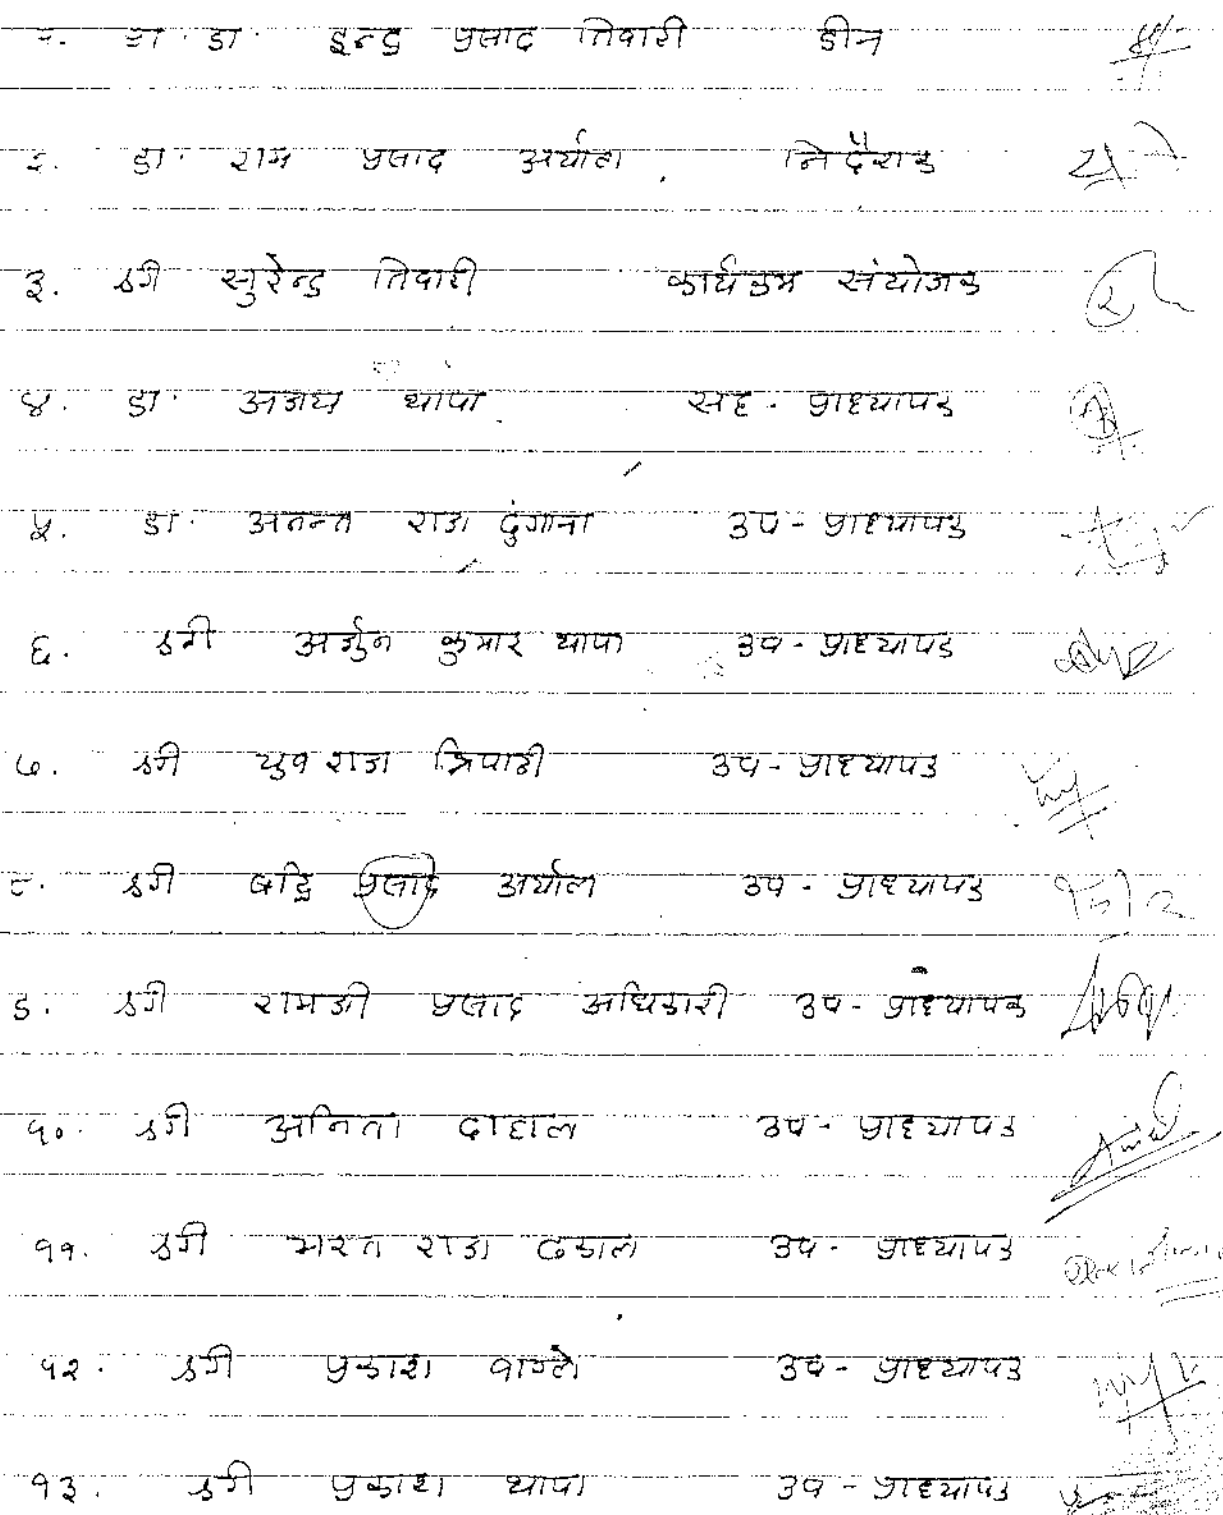 प्रा. डा. इन्दु प्रसाद तिवारी डीन
२. डा. राम प्रसाद अर्याल निर्देशक
३. श्री सुरेन्द्र तिवारी कार्यक्रम संयोजक
४. डा. अजय थापा सह-प्राध्यापक
५. डा. अनन्त राज ढुंगाना उप-प्राध्यापक
६. श्री अर्जुन कुमार थापा उप-प्राध्यापक
७. श्री युवराज त्रिपाठी उप-प्राध्यापक
८. श्री बद्रि प्रसाद अर्याल उप-प्राध्यापक
९. श्री रामजी प्रसाद अधिकारी उप-प्राध्यापक
१०. श्री अनिता दाहाल उप-प्राध्यापक
११. श्री भरत राज ढकाल उप-प्राध्यापक
१२. श्री प्रकाश वाग्ले उप-प्राध्यापक
१३. श्री प्रकाश थापा उप-प्राध्यापक